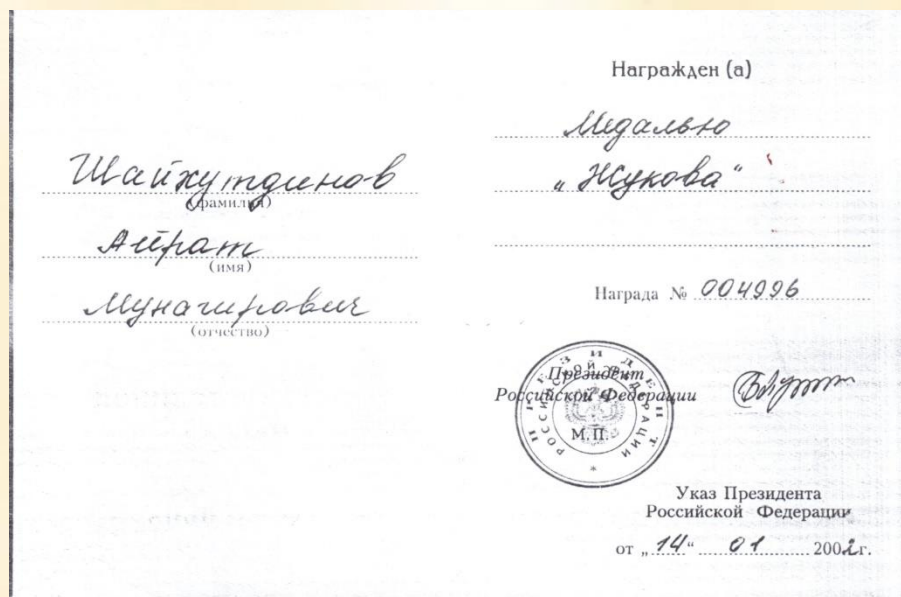 Шайхутдинов
(фамилия)
Айрат
(имя)
Мунагирович
(отчество)
Награжден (а)
Медалью
„Жукова“
Награда № 004996
Президент
Российской Федерации
М.П.
ПРЕЗИДЕНТ
РОССИЙСКОЙ ФЕДЕРАЦИИ
Указ Президента
Российской Федерации
от „14“ 01 2002г.